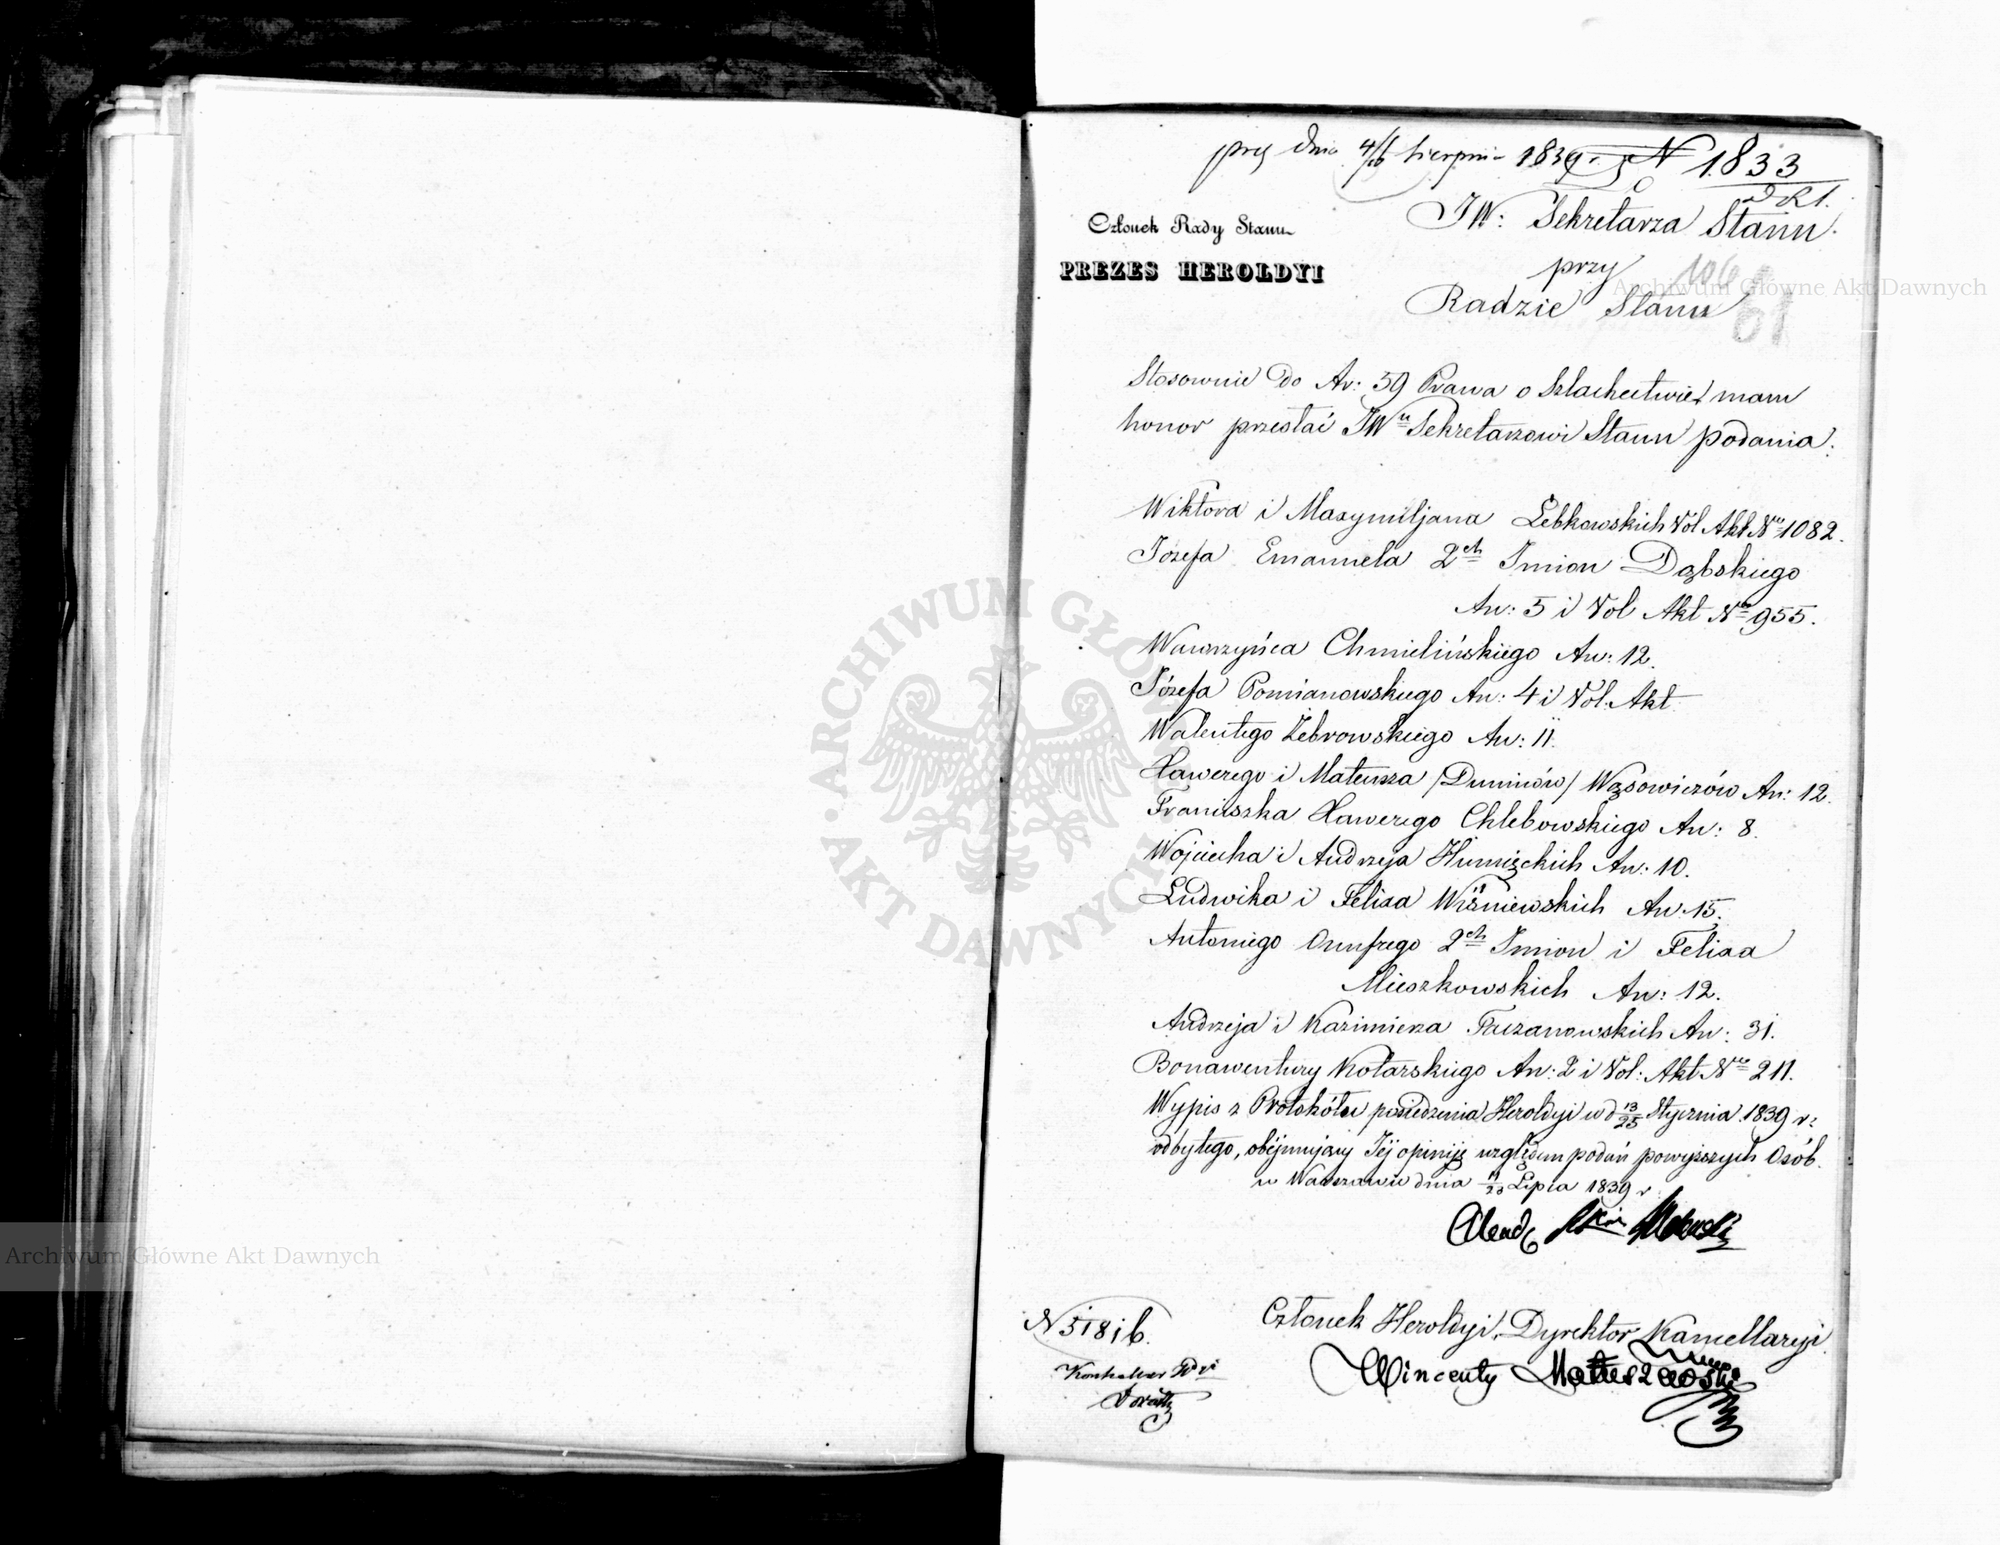 prez dnia 4/16 Sierpnia 1839 r. N 1833
JW: Sekretarza Stanu
Członek Rady Stanu
PREZES HEROLDYI
przy
Radzie Stanu
106
61
Stosownie do Ar: 59 Prawa o Szlachectwie, mam
honor przesłać JWu Sekretarzowi Stanu podania:
Wiktora i Maxymiljana Łebkowskich Vol Akt Nro 1082.
Józefa Emanuela 2ch Imion Dąbskiego
An: 5 i Vol Akt Nro 955.
Wawrzyńca Chmielińskiego An: 12.
Józefa Pomianowskiego An: 4 i Vol. Akt
Walentego Żebrowskiego An: 11.
Xawerego i Mateusza /Duninów/ Wąsowiczów An: 12.
Franciszka Xawerego Chlebowskiego An: 8.
Wojciecha i Andrzeja Humięckich An: 10.
Ludwika i Felixa Wiśniewskich An: 15.
Antoniego Onufrego 2ch Imion i Felixa
Mieszkowskich An: 12.
Andrzeja i Kazimierza Truzanowskich An: 31.
Bonawentury Kotarskiego An: 2 i Vol: Akt Nro 211.
Wypis z Protokółu posiedzenia Heroldyi w d 13/25 Stycznia 1839 r:
odbytego, obejmujący Jej opiniję względem podań powyższych Osób.
w Warszawie dnia 11/23 Lipca 1839 r
Członek Heroldyi, Dyrektor Kancellaryi
N 5181 b.
Wincenty Matuszewski
Archiwum Główne Akt Dawnych
Archiwum Główne Akt Dawnych
ARCHIWUM GŁÓWNE AKT DAWNYCH